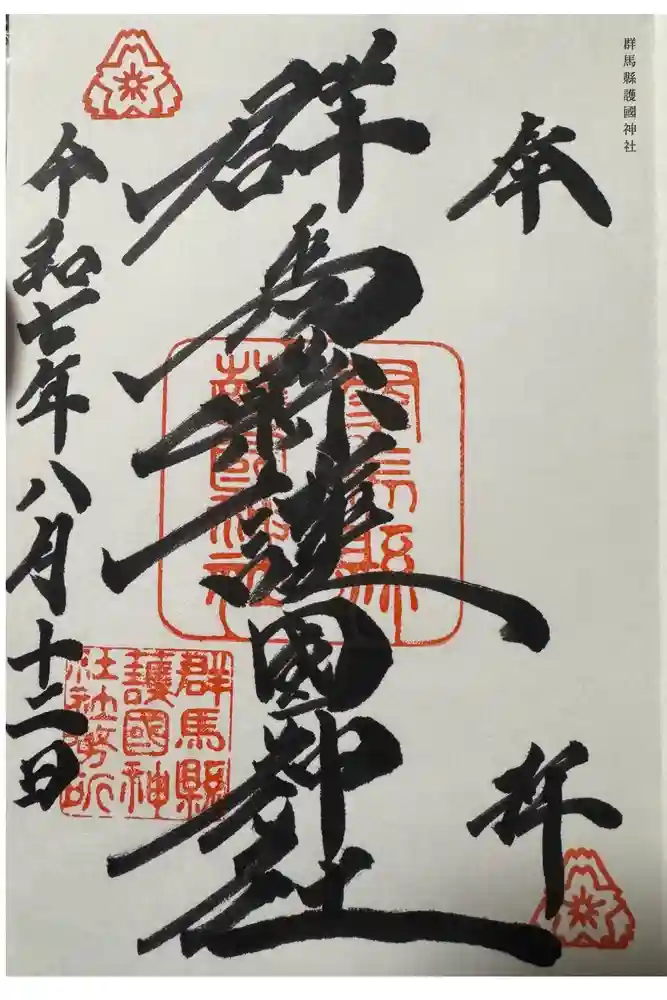 群馬縣護國神社
奉拝
群馬縣護國神社
群馬縣
護國神社
群馬縣
護國神
社社務所
令和七年八月十二日